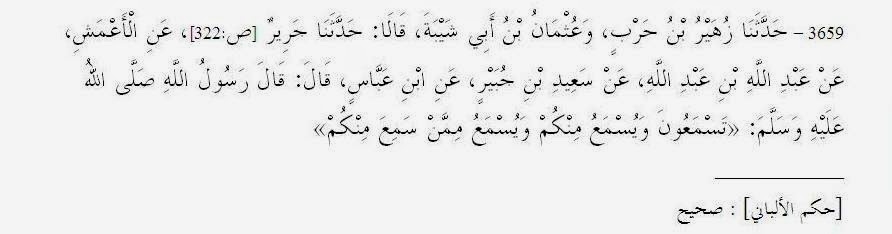 3659 - حَدَّثَنَا زُهَيْرُ بْنُ حَرْبٍ، وَعُثْمَانُ بْنُ أَبِي شَيْبَةَ، قَالَا: حَدَّثَنَا جَرِيرٌ [ص:322]، عَنِ الْأَعْمَشِ،
عَنْ عَبْدِ اللَّهِ بْنِ عَبْدِ اللَّهِ، عَنْ سَعِيدِ بْنِ جُبَيْرٍ، عَنِ ابْنِ عَبَّاسٍ، قَالَ: قَالَ رَسُولُ اللَّهِ صَلَّى اللهُ
عَلَيْهِ وَسَلَّمَ: «تَسْمَعُونَ وَيُسْمَعُ مِنْكُمْ وَيُسْمَعُ مِمَّنْ سَمِعَ مِنْكُمْ»
[حكم الألباني] : صحيح